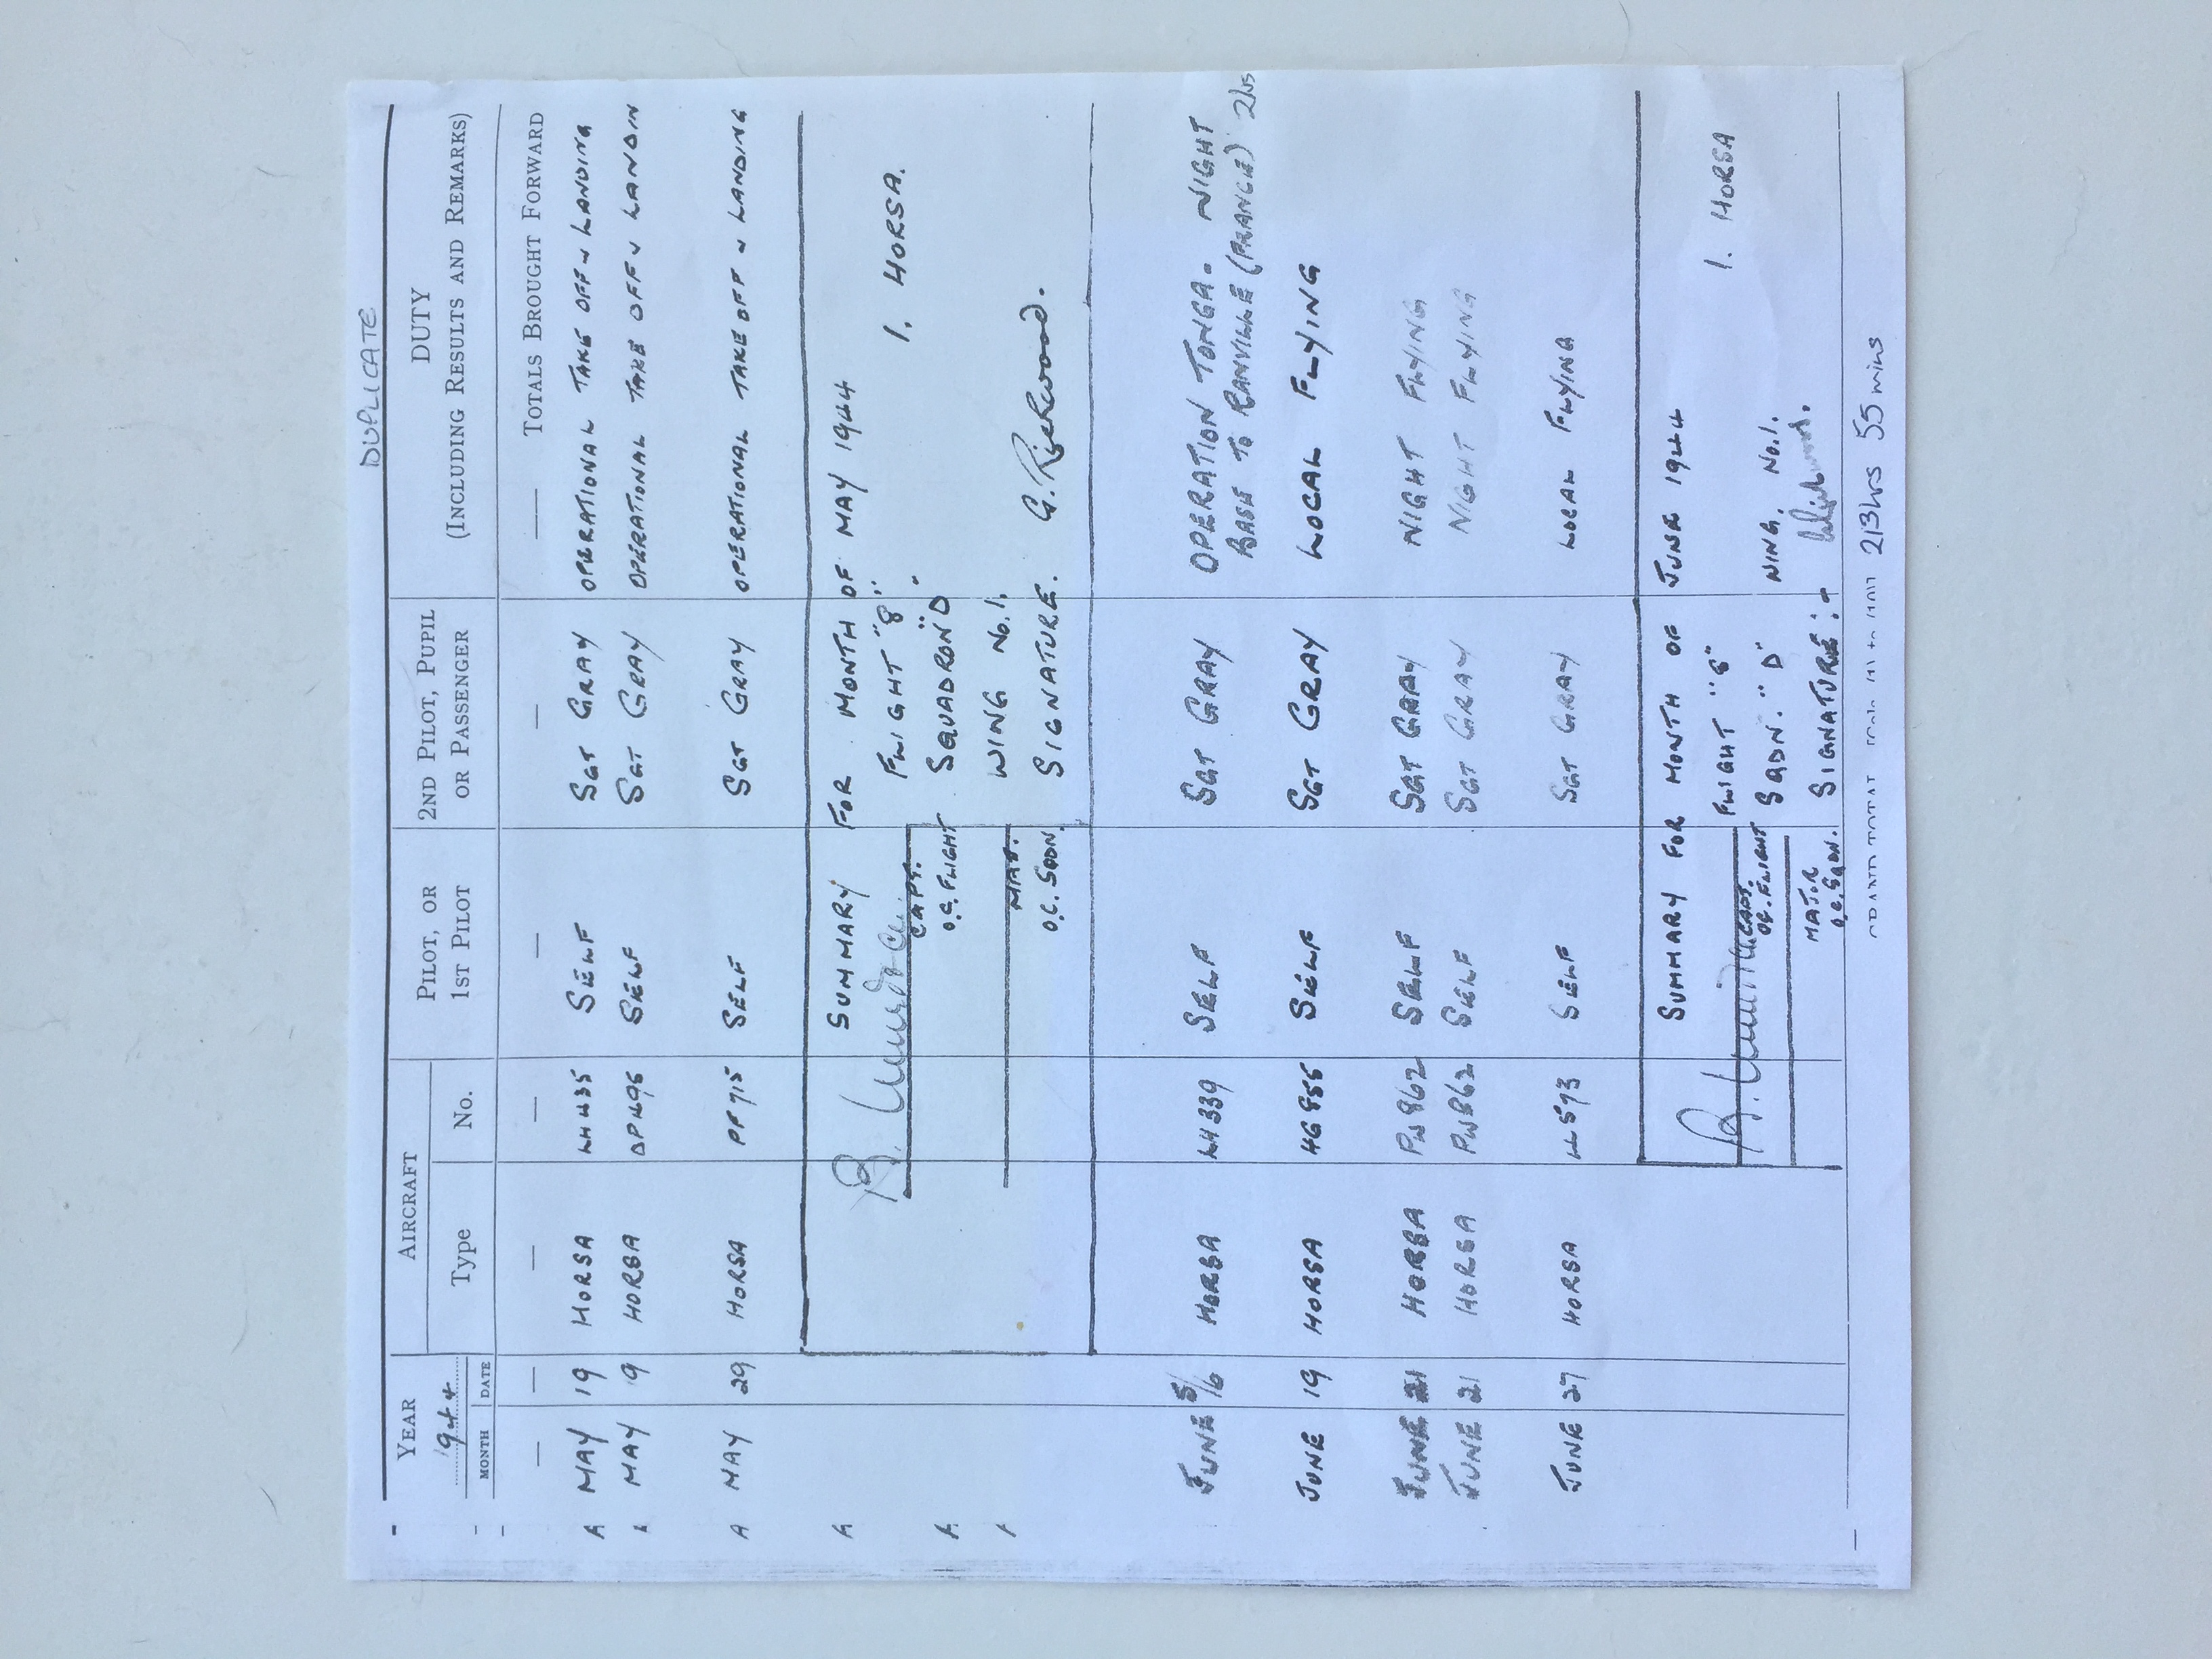 DUPLICATE
YEAR AIRCRAFT PILOT, OR 2ND PILOT, PUPIL DUTY
1944 Type No. 1ST PILOT OR PASSENGER (INCLUDING RESULTS AND REMARKS)
MONTH DATE
— — — — — — —— TOTALS BROUGHT FORWARD
A MAY 19 HORSA LH435 SELF SGT GRAY OPERATIONAL TAKE OFF & LANDING
MAY 19 HORSA DP495 SELF SGT GRAY OPERATIONAL TAKE OFF & LANDIN
A MAY 29 HORSA PF715 SELF SGT GRAY OPERATIONAL TAKE OFF & LANDING
A SUMMARY FOR MONTH OF MAY 1944
FLIGHT "8" 1. HORSA.
CAPT.
O.C. FLIGHT SQUADRON "D"
WING No.1.
MAJ.
O.C. SQDN. SIGNATURE. G.
JUNE 5/6 HORSA LH339 SELF SGT GRAY OPERATION TONGA. NIGHT
BASE TO RANVILLE (FRANCE) 2hrs
JUNE 19 HORSA HG855 SELF SGT GRAY LOCAL FLYING
JUNE 21 HORSA PW862 SELF SGT GRAY NIGHT FLYING
JUNE 21 HORSA PW862 SELF SGT GRAY NIGHT FLYING
JUNE 27 HORSA LL573 SELF SGT GRAY LOCAL FLYING
SUMMARY FOR MONTH OF JUNE 1944
FLIGHT "8" 1. HORSA
CAPT.
O.C. FLIGHT SQDN. "D" WING. No.1.
MAJOR
O.C. SQDN. SIGNATURE:-
GRAND TOTAL 213hrs 55mins